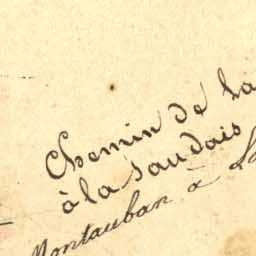 Chemin de la
à la Saudais
Montauban à